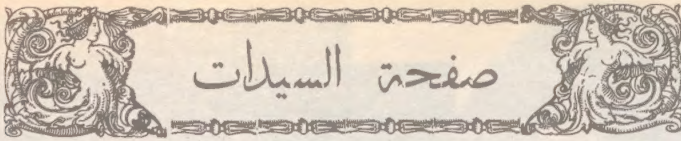 صفحة السيدات